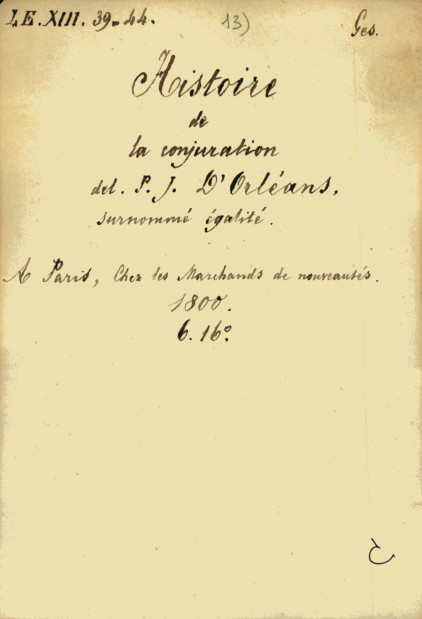 LE.XIII. 39-44.
13)
Ges.
Histoire
de
la conjuration
del. P. J. D'Orléans,
surnommé égalité.
A Paris, Chez les Marchands de nouveautés.
1800.
6. 16º.